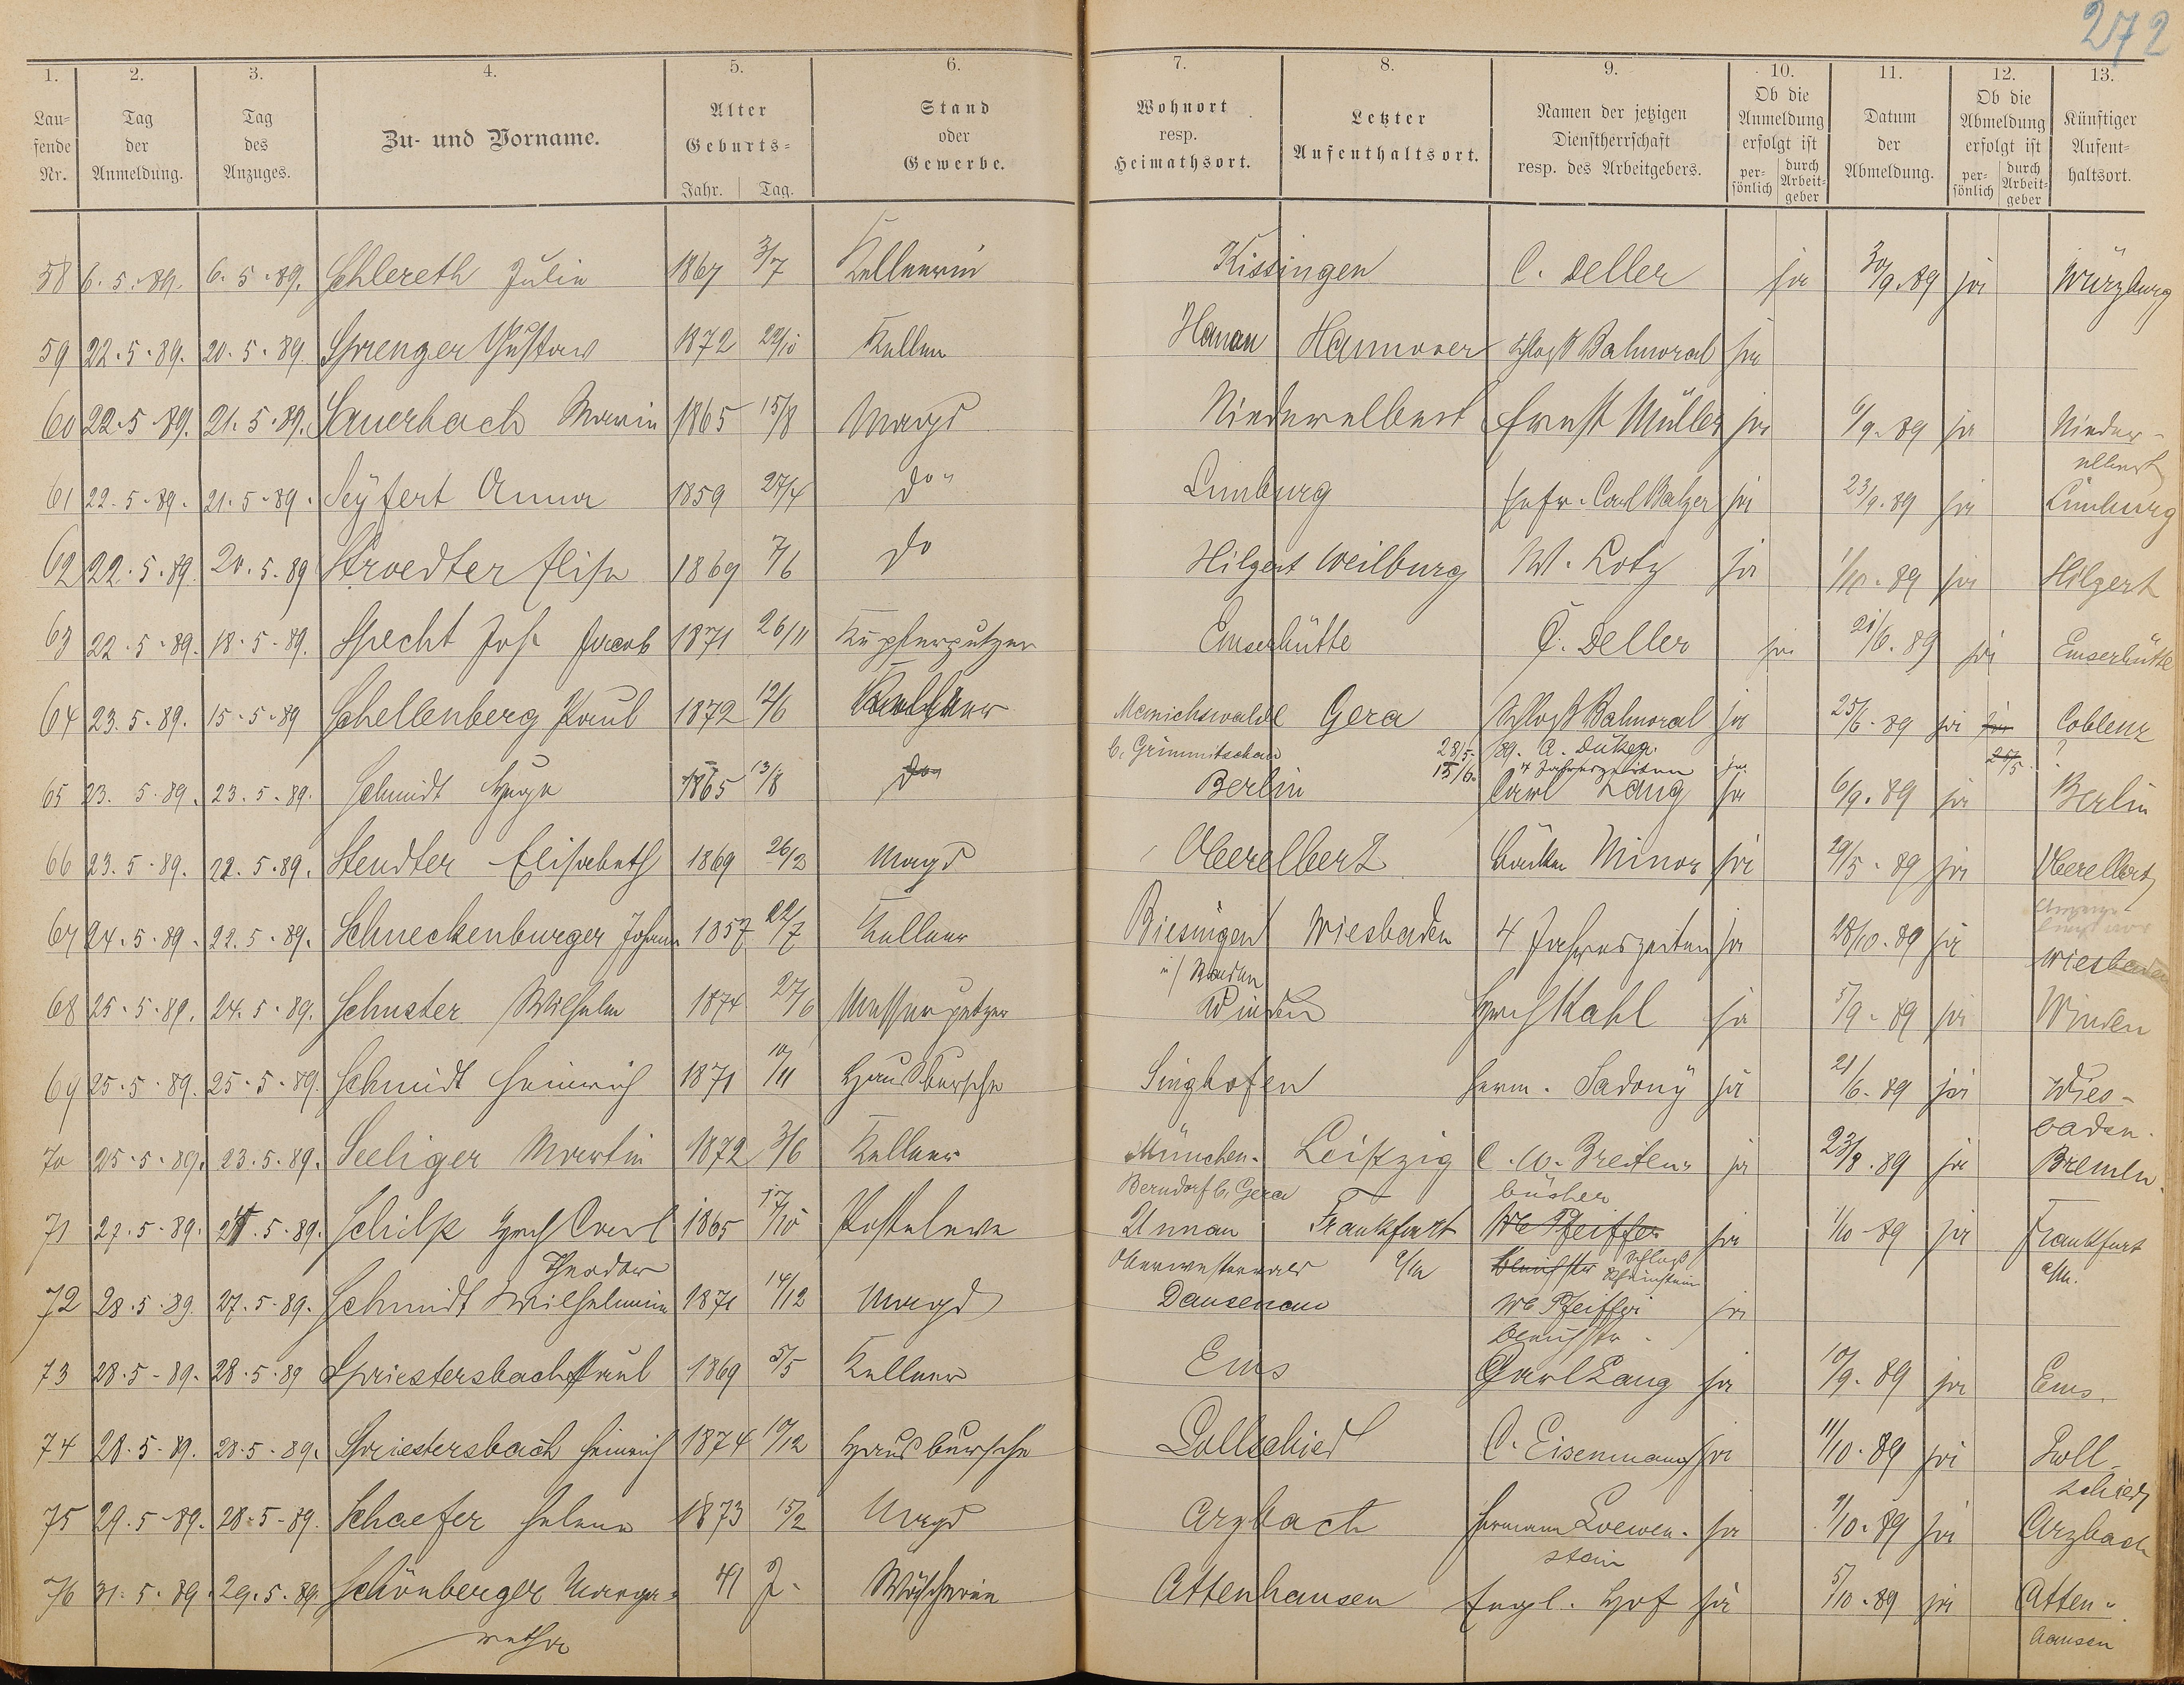 272
1. 2. 3. 4. 5. 6. 7. 8. 9. 10. 11. 12. 13.
Laufende Nr. Tag der Anmeldung. Tag des Anzuges. Zu- und Vorname. Alter Geburts- Jahr. Tag. Stand oder Gewerbe. Wohnort resp. Heimathsort. Letzter Aufenthaltsort. Namen der jetzigen Dienstherrschaft resp. des Arbeitgebers. Ob die Anmeldung erfolgt ist persönlich durch Arbeitgeber Datum der Abmeldung. Ob die Abmeldung erfolgt ist persönlich durch Arbeitgeber Künftiger Aufenthaltsort.
58 6.5.89. 6.5.89. Schlereth Julie 1867 3/7 Kellnerin Kissingen C. Deller ja 30/9.89 ja Würzburg
59 22.5.89. 20.5.89. Sprenger Gustav 1872 22/10 Kellner Hanau Hannover Schloß Balmoral ja
60 22.5.89. 21.5.89. Sauerbach Marie 1865 15/8 Magd Niederelbert Ernst Müller ja 6/9.89 ja Nieder-
elbert
61 22.5.89. 21.5.89. Seyfert Anna 1859 27/4 do Limburg Carl Balzer ja 23/9.89 ja Limburg
62 22.5.89. 20.5.89 Stroedter Elise 1869 7/6 do Hilgert Weilburg W. Lotz ja 1/10.89 ja Hilgert
63 22.5.89. 18.5.89. Specht Joh. Jacob 1871 26/11 Kupferputzer Emserhütte C. Deller ja 21/6.89 ja Emserhütte
64 23.5.89. 15.5.89 Schellenberg Paul 1872 12/6 Kellner Mannichswalde Gera Schloß Balmoral ja 25/6.89 ja ja Coblenz
b. Crimmitschau 28/5. 89. A. Düker. 25/5. ?
15/6. 4 Jahreszeiten ja
65 23.5.89. 23.5.89. Schmidt Hugo 1865 13/8 do Berlin Carl Lang ja 6/9.89 ja Berlin
66 23.5.89. 22.5.89. Stendter Elisabeth 1869 26/3 Magd Oberelbert Bäcker Minor ja 29/5.89 ja Oberelbert
67 24.5.89. 22.5.89. Schneckenburger Johann 1857 22/7 Kellner Biesingen Wiesbaden 4 Jahreszeiten ja 28/10.89 ja Wiesbaden
i/ Baden
68 25.5.89. 24.5.89. Schuster Wilhelm 1874 27/6 Messerputzer Winden Hrch Kahl ja 5/9.89 ja Winden
69 25.5.89. 25.5.89. Schmidt Heinrich 1871 10/11 Hausbursche Singhofen Herm. Sadony ja 21/6.89 ja Wies-
baden.
70 25.5.89. 23.5.89. Seeliger Martin 1872 3/6 Kellner München- Leipzig C.W. Breiten- ja 23/8.89 ja Bremen.
Berndorf b. Gera bücher
71 27.5.89. 25.5.89. Schilp Hrch Carl 1865 17/10 Posteleve Unnau Frankfurt We Pfeiffer ja 1/10.89 ja Frankfurt
Theodor Oberwesterwald a/M Schloß Rheinstein a/M.
72 28.5.89. 27.5.89. Schmidt Wilhelmine 1871 14/12 Magd Dausenau We Pfeiffer ja
73 28.5.89. 28.5.89 Spriestersbach Paul 1869 5/5 Kellner Ems Carl Lang ja 10/9.89 ja Ems.
74 28.5.89. 28.5.89. Spriestersbach Heinrich 1874 10/12 Hausbursche Lollschied C. Eisenmann ja 11/10.89 ja Loll-
schied
75 29.5.89. 28.5.89. Schaefer Helene 1873 15/2 Magd Arzbach Hermann Loewen- ja 9/10.89 ja Arzbach
stein
76 31.5.89. 29.5.89. Schönberger Marga- 41 J. Wäscherin Attenhausen Engl. Hof ja 5/10.89 ja Atten-
retha hausen